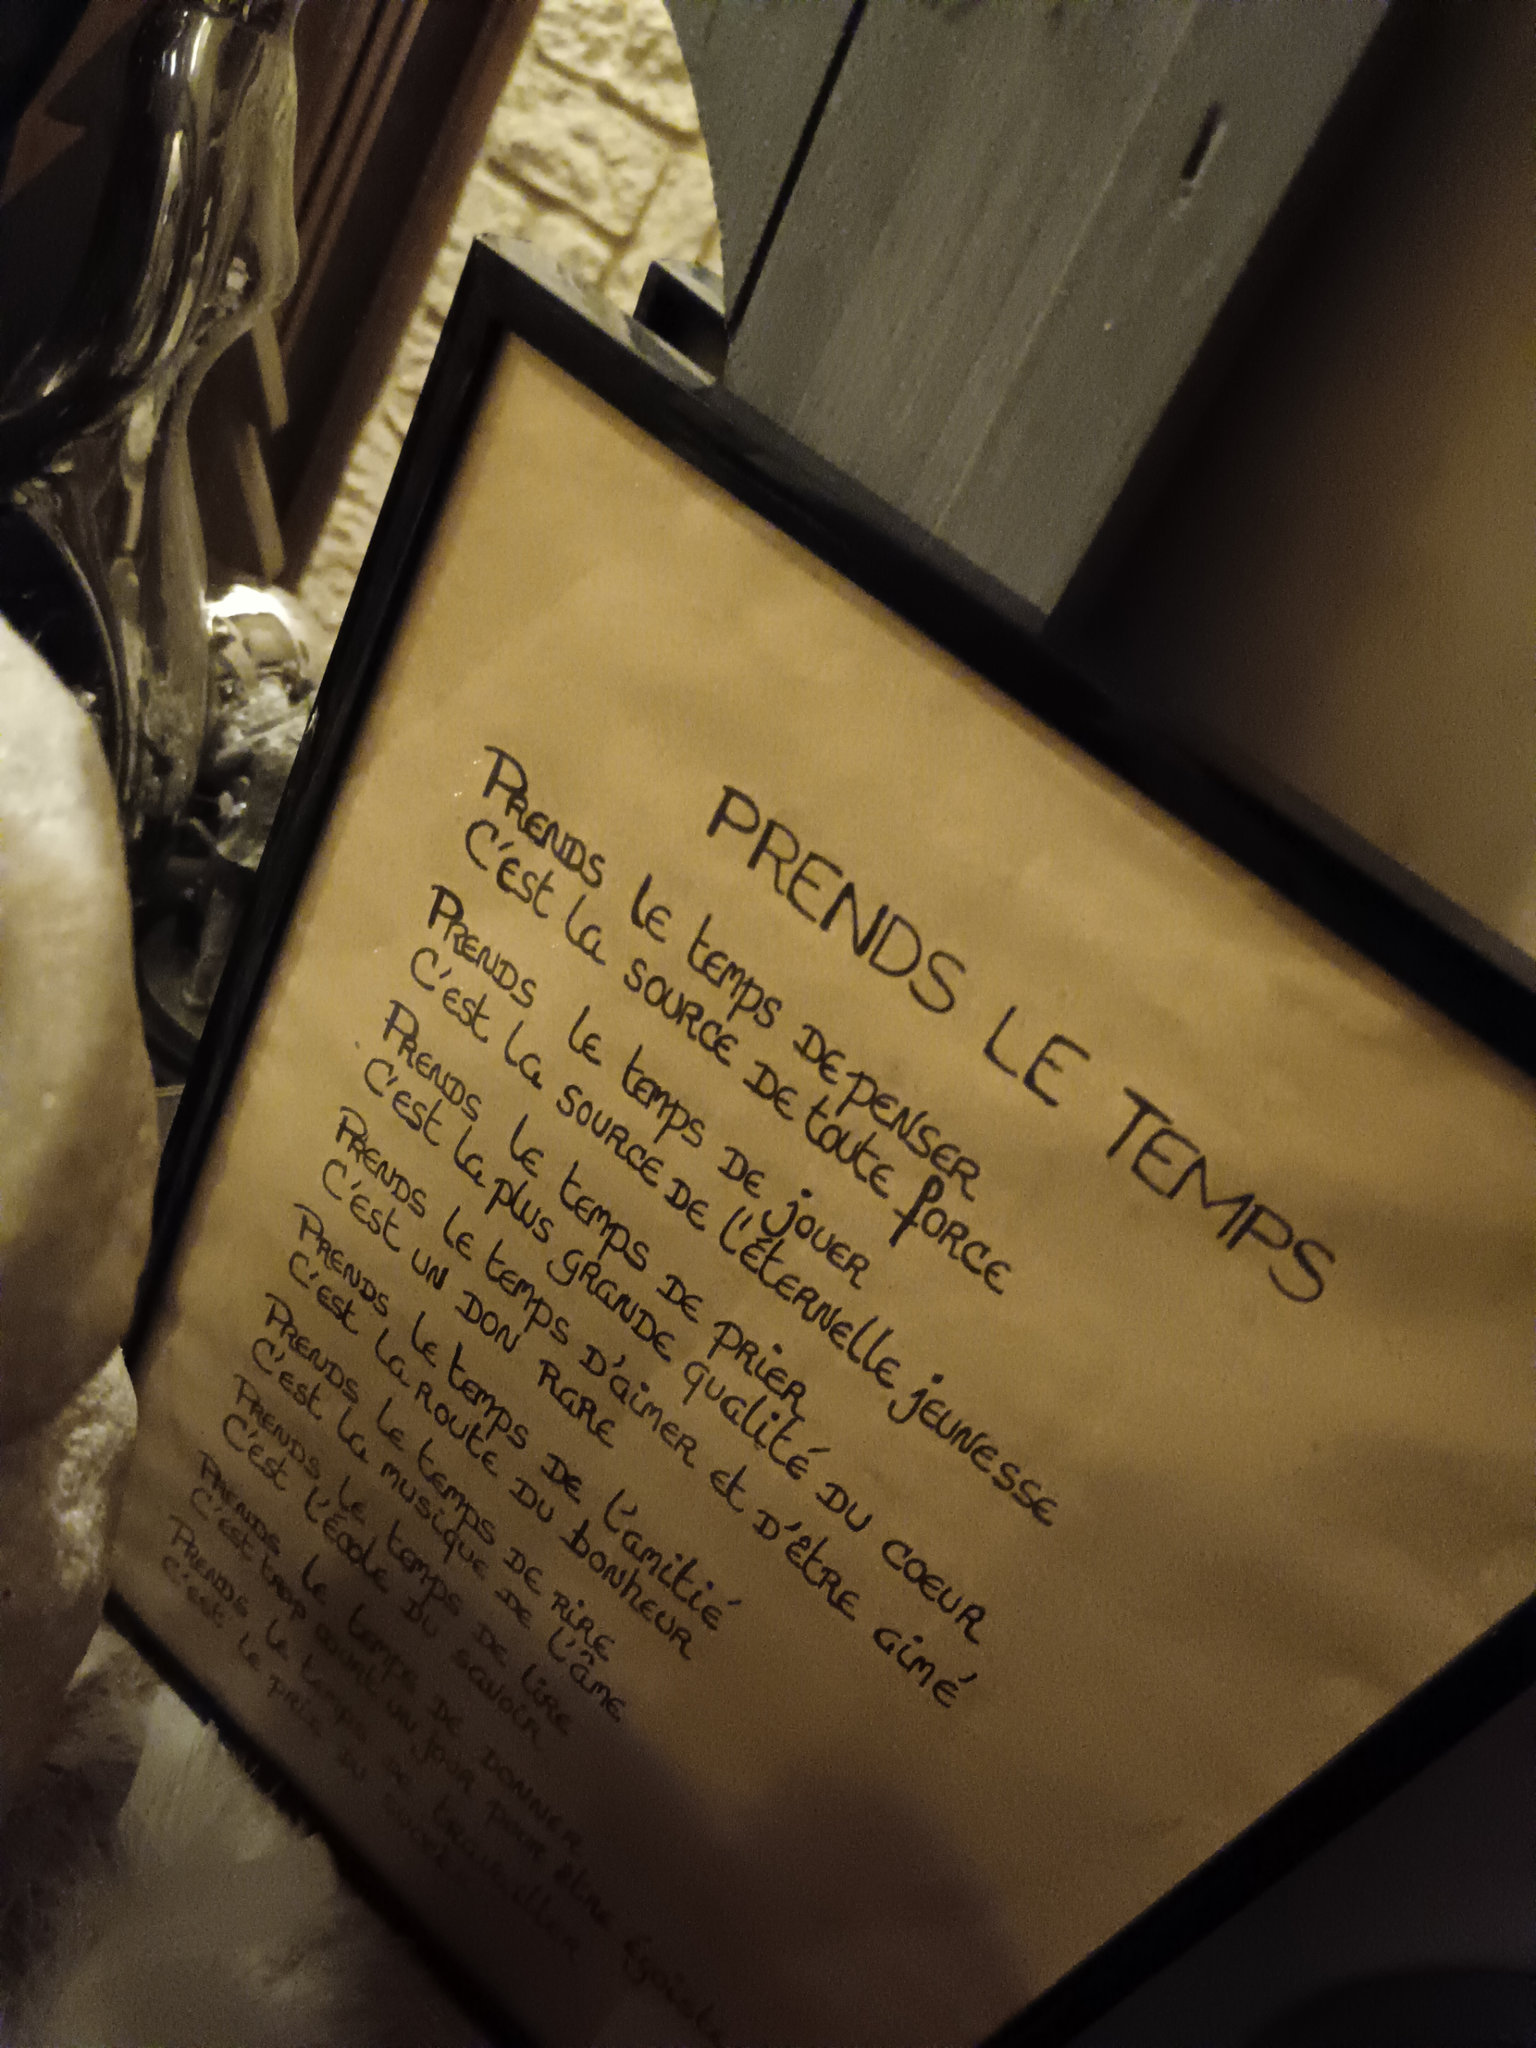 PRENDS LE TEMPS
PRENDS le temps DE PENSER
C'est la source de toute force
PRENDS le temps DE jouer
C'est la source de l'éternelle jeunesse
PRENDS le temps DE PRIER
C'est la plus grande qualité du coeur
PRENDS le temps D'aimer et d'être aimé
C'est un don rare
PRENDS le temps DE l'amitié
C'est la route du bonheur
PRENDS le temps DE RIRE
C'est la musique de l'âme
PRENDS le temps DE lire
C'est l'école du savoir
PRENDS le temps DE DONNER
C'est trop court un jour pour être égoiste
PRENDS le temps DE travailler
C'est le prix du